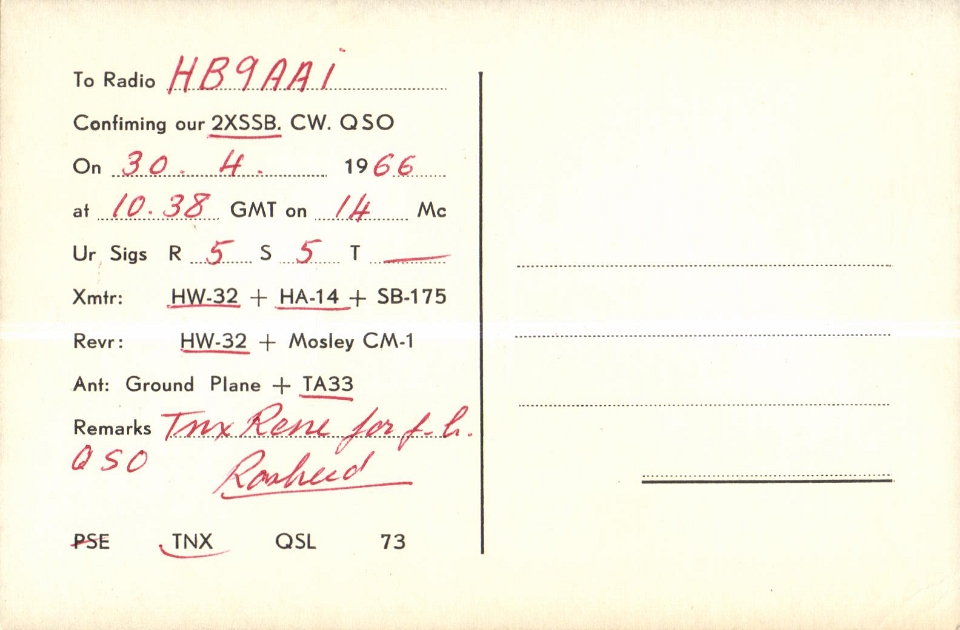 To Radio HB9AAi
Confiming our 2XSSB. CW. QSO
On 30. 4. 1966
at 10.38 GMT on 14 Mc
Ur Sigs R 5 S 5 T —
Xmtr: HW-32 + HA-14 + SB-175
Revr: HW-32 + Mosley CM-1
Ant: Ground Plane + TA33
Remarks Tnx Rene for f.b.
QSO
Rasheed
PSE TNX QSL 73